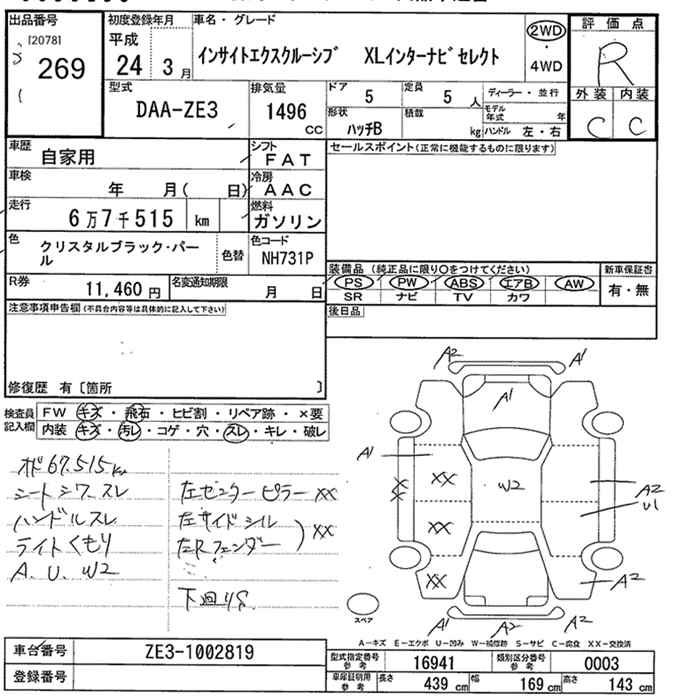 出品番号
[2078]
269
初度登録年月
平成
24 3 月
車名・グレード
インサイトエクスクルーシブ XLインターナビセレクト
2WD
・
4WD
評価点
R
外装 内装
C C
型式
DAA-ZE3
排気量
1496
cc
ドア
5
定員
5 人
形状
ハッチB
積載
kg
ディーラー・並行
モデル年式 年
ハンドル 左・右
車歴
自家用
シフト
FAT
車検
年 月( 日)
冷房
AAC
走行
6万7千515 km
燃料
ガソリン
色
クリスタルブラック・パール
色替
色コード
NH731P
R券
11,460 円
名変通知期限
月 日
セールスポイント(正常に機能するものに限ります)
装備品 (純正品に限り○をつけてください)
PS PW ABS エアB AW
SR ナビ TV カワ
新車保証書
有・無
後日品
注意事項申告欄(不具合内容等は具体的に記入して下さい)
修復歴 有〔箇所 〕
検査員記入欄
FW キズ・飛石・ヒビ割・リペア跡・×要
内装 キズ・汚レ・コゲ・穴・スレ・キレ・破レ
メド 67.515km
シートシワ スレ
ハンドルスレ
ライトくもり
A. U. W2
左センターピラー XX
左サイドシル
左Rフェンダー
) XX
下回りS
A2
A1
A1
A1
XX
XX
XX
XX
W2
A2
U1
A2
A1
A2
A2
スペア
A-キズ E-エクボ U-凹み W-補修跡 S-サビ C-腐食 XX-交換済
車台番号
ZE3-1002819
登録番号
型式指定番号 参考
16941
類別区分番号 参考
0003
車庫証明用 参考
長さ
439 cm
幅
169 cm
高さ
143 cm